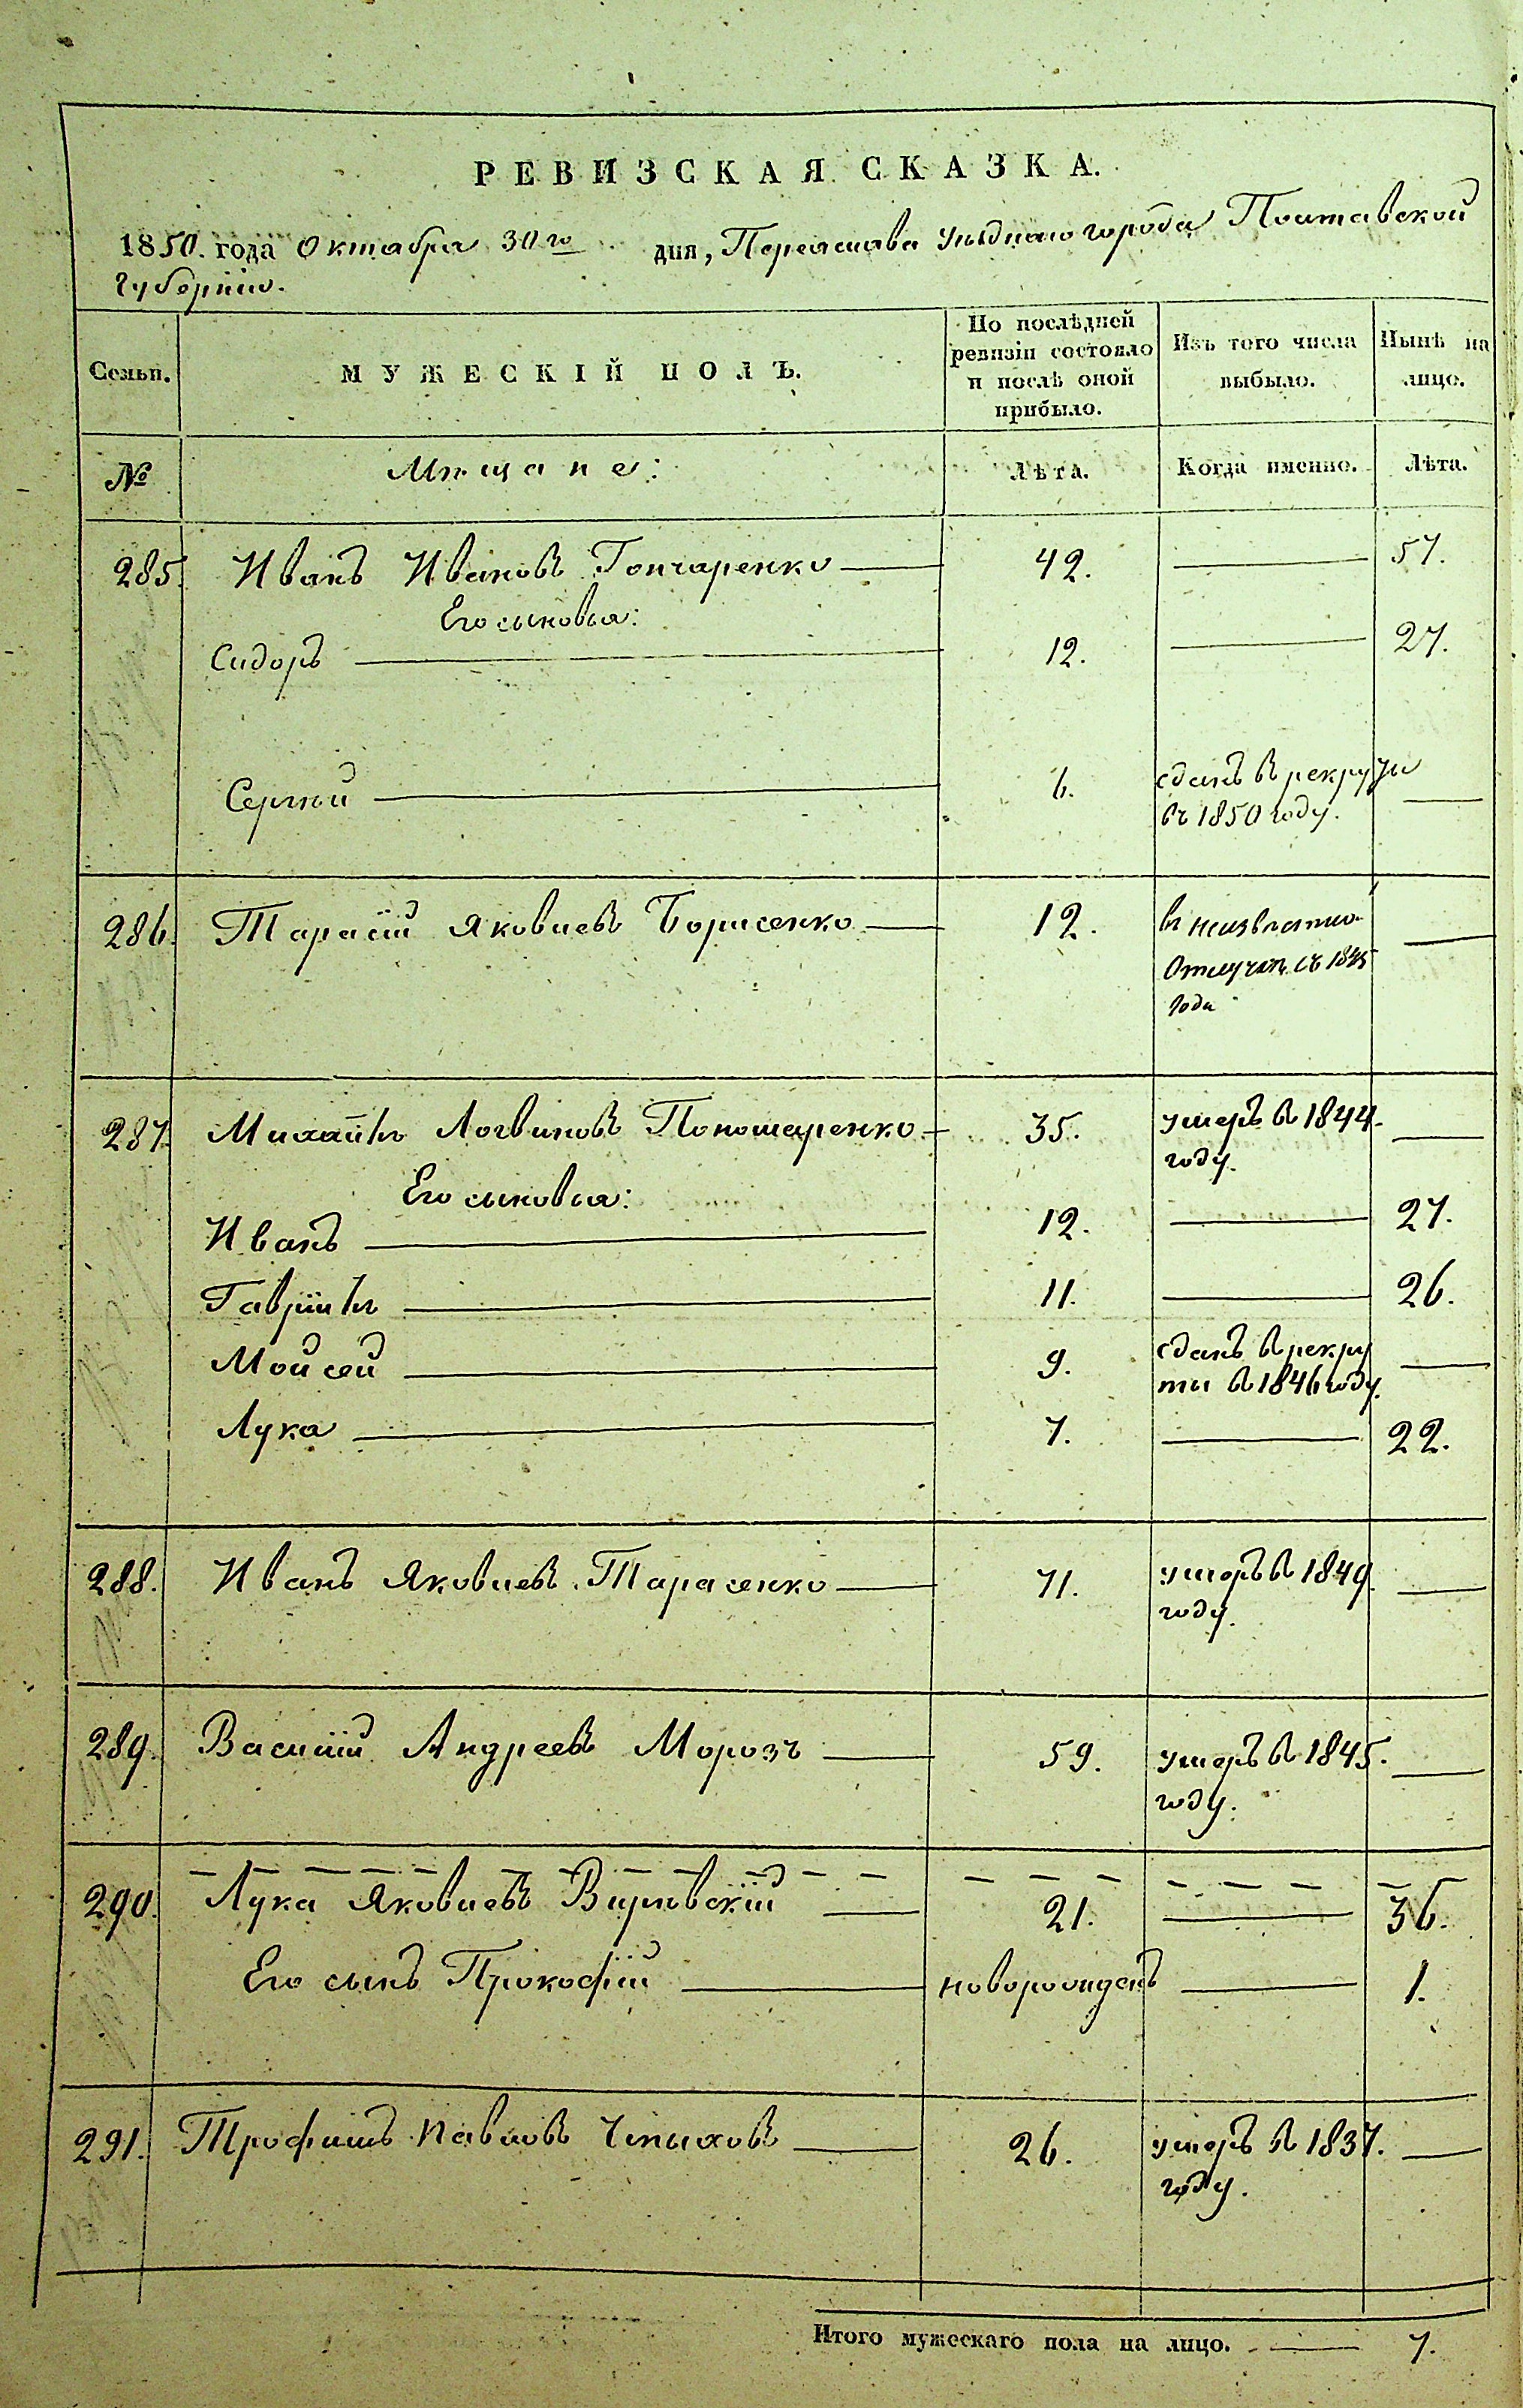 РЕВИЗСКАЯ СКАЗКА.
1850. года Октября 30го дня, Переяслава уѣзднаго города Полтавской
Губерніи.
Семьи.
МУЖЕСКІЙ ПОЛЪ.
По послѣдней ревизіи состояло и послѣ оной прибыло.
Изъ того числа выбыло.
Нынѣ на лицо.
№ Мѣщане: Лѣта. Когда именно. Лѣта.
285. Иванъ Ивановъ Гончаренко — 42. — 57.
Его сыновья:
Сидоръ — 12. — 27.
Сергѣй — 6. сданъ въ рекруты —
въ 1850 году.
286. Тарасій Яковлевъ Борисенко — 12. въ неизвѣстно —
Отлучкѣ съ 1845
года
287. Михаилъ Логвиновъ Пономаренко — 35. умеръ въ 1844. —
году.
Его сыновья:
Иванъ — 12. — 27.
Гавріилъ — 11. — 26.
Мойсей — 9. сданъ въ рекру —
ты въ 1846 году.
Лука — 7. — 22.
288. Иванъ Яковлевъ Тарасенко — 71. умеръ въ 1849 —
году.
289. Василій Андреевъ Морозъ — 59. умеръ въ 1845. —
году.
290. Лука Яковлевъ — 21. — 36.
Его сынъ Прокофій — новорожденъ — 1.
291. Трофимъ Павловъ — 26. умеръ въ 1837. —
году.
Итого мужескаго пола на лицо. — 7.